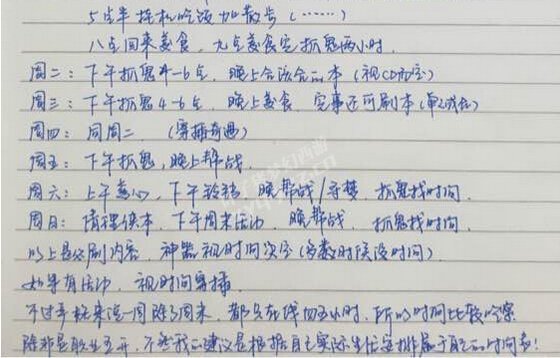 5点半挂机吃饭加散步（……）
八点回来美食，九点美食完抓鬼两小时.
周二：下午抓鬼4-6点，晚上合法合副本（视CD而定）
周三：下午抓鬼4-6点，晚上美食，完事还可刷本（单2或合）
周四：同周二 （穿插奇遇）
周五：下午抓鬼，晚上帮战.
周六：上午 下午 晚帮战/守楼 抓鬼找时间.
周日：清理侠本，下午周末活动，晚帮战，抓鬼找时间.
以上是必刷内容，神器视时间次定（多数时候没时间）.
如果有活动，视时间穿插.
不过平 来说一周除了周末，都只在线四五小时，所以时间比较吃紧
除非是职业五开，不然我的建议是根据自己实际生活安排属于自己的时间表！